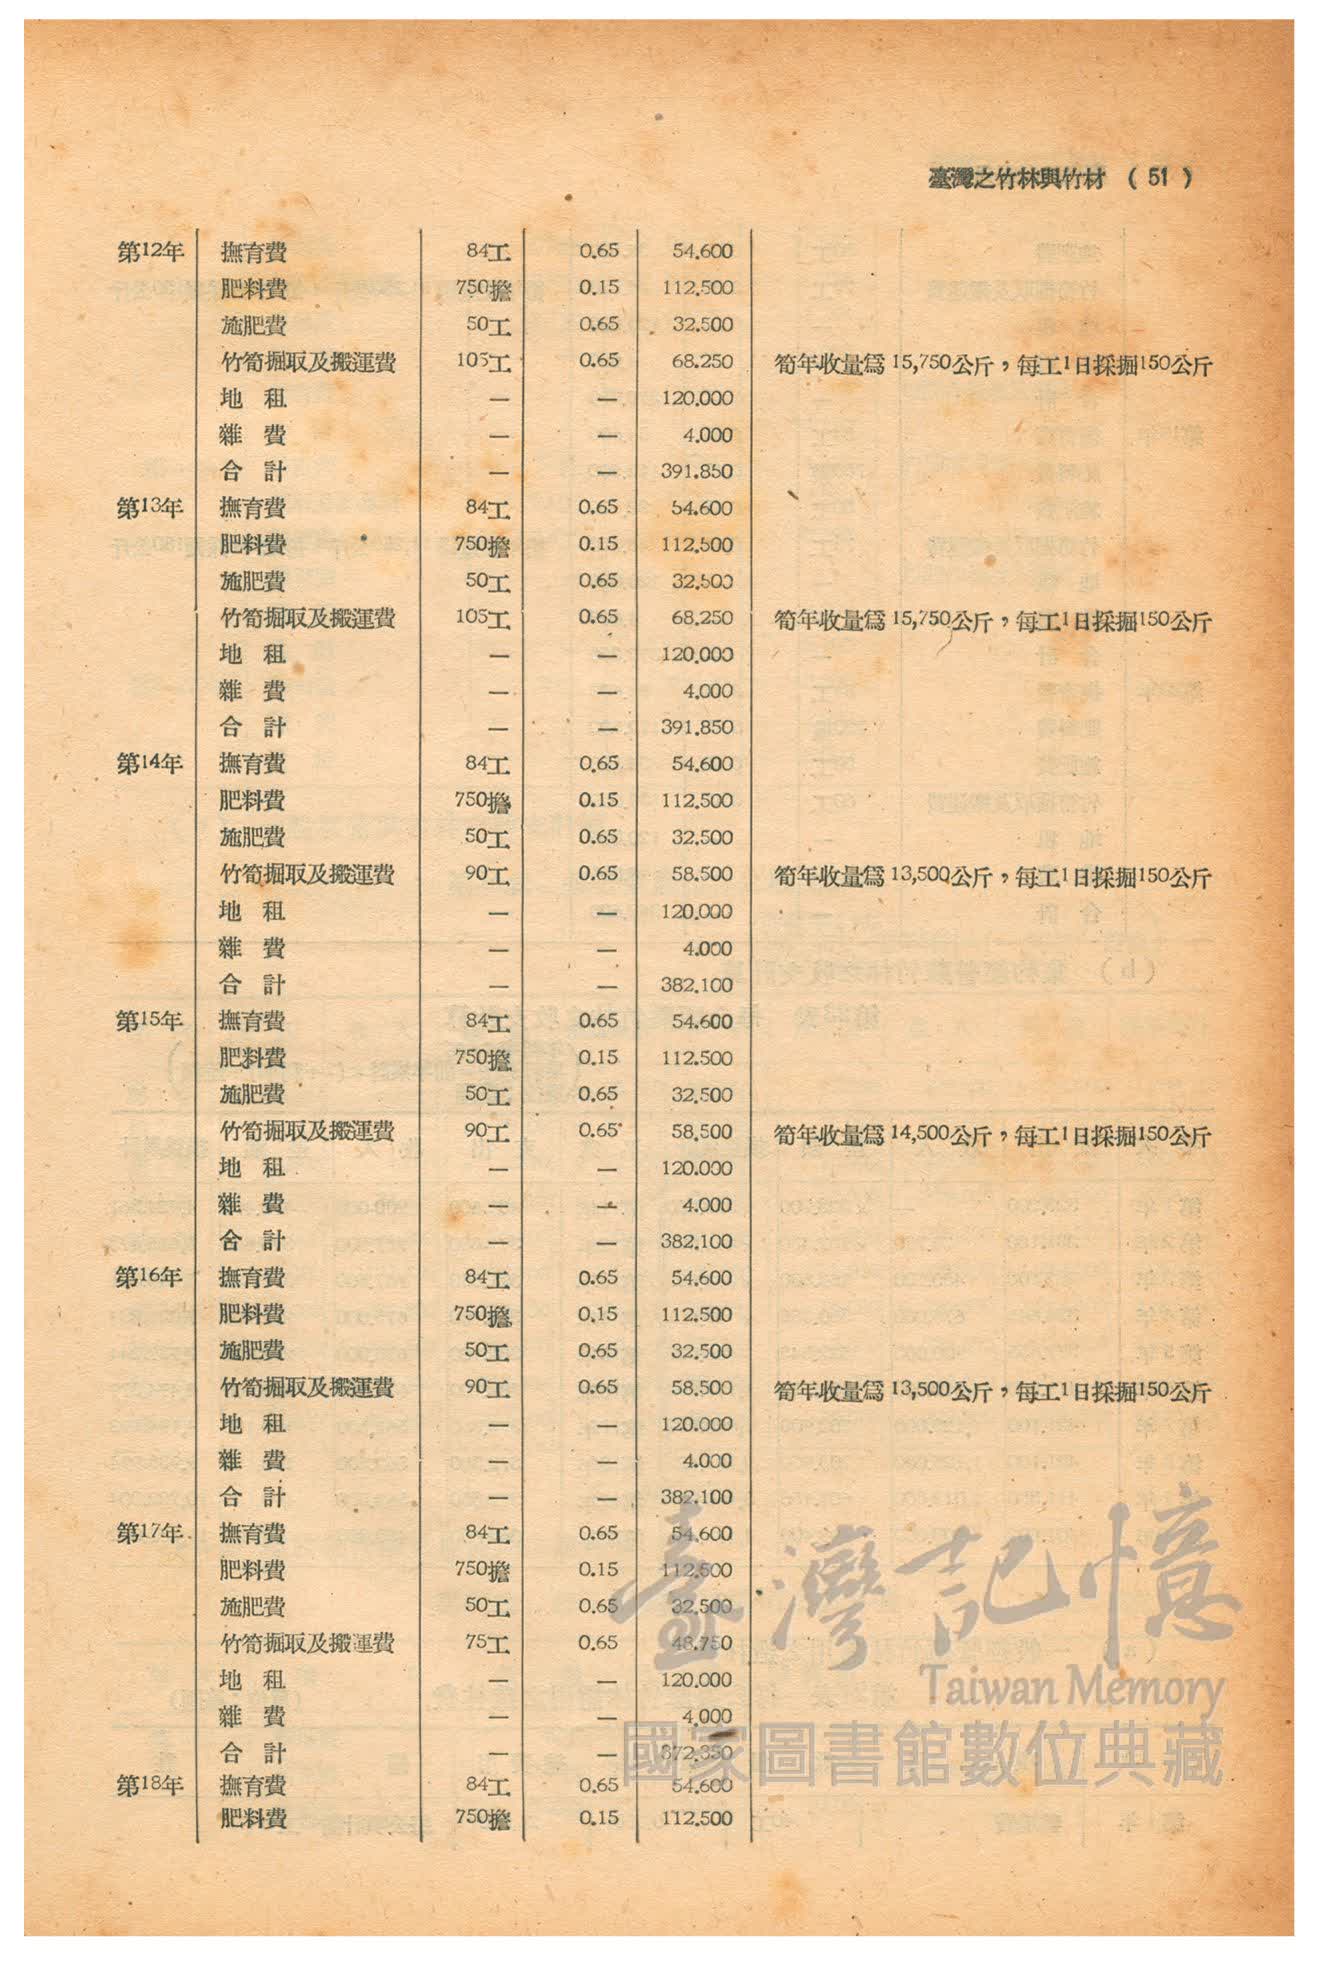 臺灣之竹林與竹材 (51)
第12年 撫育費 84工 0.65 54.600
肥料費 750擔 0.15 112.500
施肥費 50工 0.65 32.500
竹筍掘取及搬運費 105工 0.65 68.250 筍年收量爲15,750公斤，每工1日採掘150公斤
地 租 — — 120.000
雜 費 — — 4.000
合 計 — — 391.850
第13年 撫育費 84工 0.65 54.600
肥料費 750擔 0.15 112.500
施肥費 50工 0.65 32.500
竹筍掘取及搬運費 105工 0.65 68.250 筍年收量爲15,750公斤，每工1日採掘150公斤
地 租 — — 120.000
雜 費 — — 4.000
合 計 — — 391.850
第14年 撫育費 84工 0.65 54.600
肥料費 750擔 0.15 112.500
施肥費 50工 0.65 32.500
竹筍掘取及搬運費 90工 0.65 58.500 筍年收量爲13,500公斤，每工1日採掘150公斤
地 租 — — 120.000
雜 費 — — 4.000
合 計 — — 382.100
第15年 撫育費 84工 0.65 54.600
肥料費 750擔 0.15 112.500
施肥費 50工 0.65 32.500
竹筍掘取及搬運費 90工 0.65 58.500 筍年收量爲14,500公斤，每工1日採掘150公斤
地 租 — — 120.000
雜 費 — — 4.000
合 計 — — 382.100
第16年 撫育費 84工 0.65 54.600
肥料費 750擔 0.15 112.500
施肥費 50工 0.65 32.500
竹筍掘取及搬運費 90工 0.65 58.500 筍年收量爲13,500公斤，每工1日採掘150公斤
地 租 — — 120.000
雜 費 — — 4.000
合 計 — — 382.100
第17年 撫育費 84工 0.65 54.600
肥料費 750擔 0.15 112.500
施肥費 50工 0.65 32.500
竹筍掘取及搬運費 75工 0.65 48.750
地 租 — — 120.000
雜 費 — — 4.000
合 計 — — 372.350
第18年 撫育費 84工 0.65 54.600
肥料費 750擔 0.15 112.500
臺灣記憶
Taiwan Memory
國家圖書館數位典藏